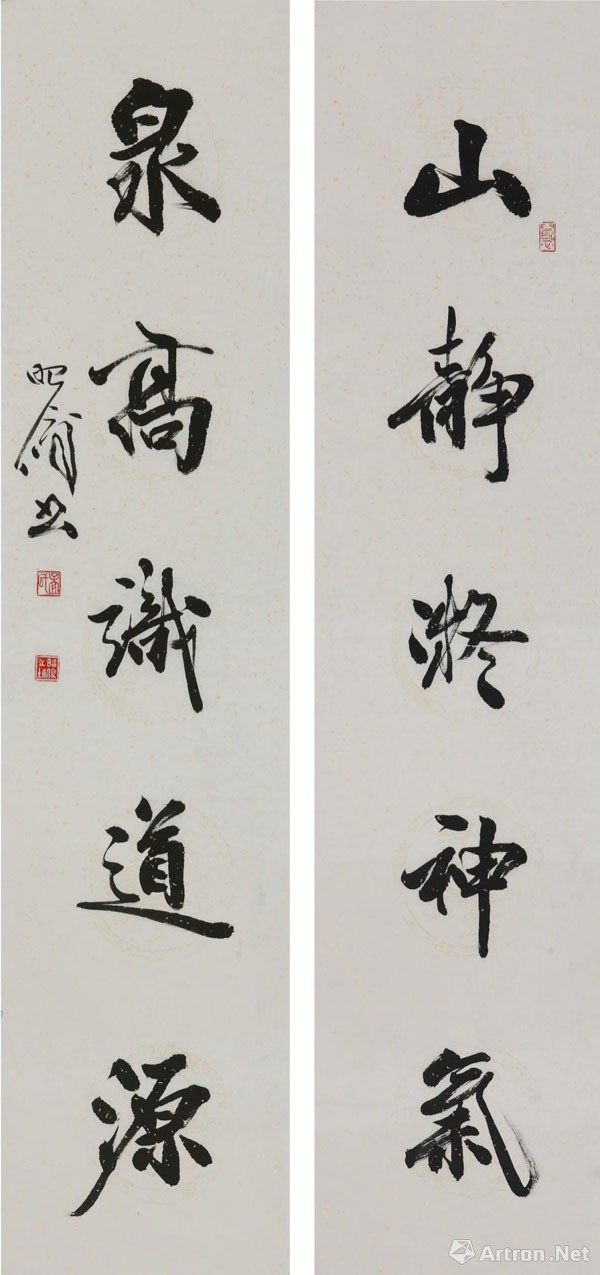 山靜凝神氣
泉高識道源
Artron.Net